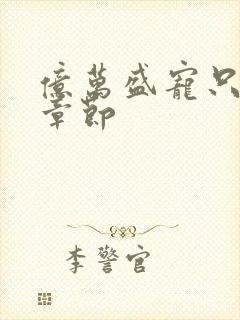 億萬盛寵只
章節
李警官